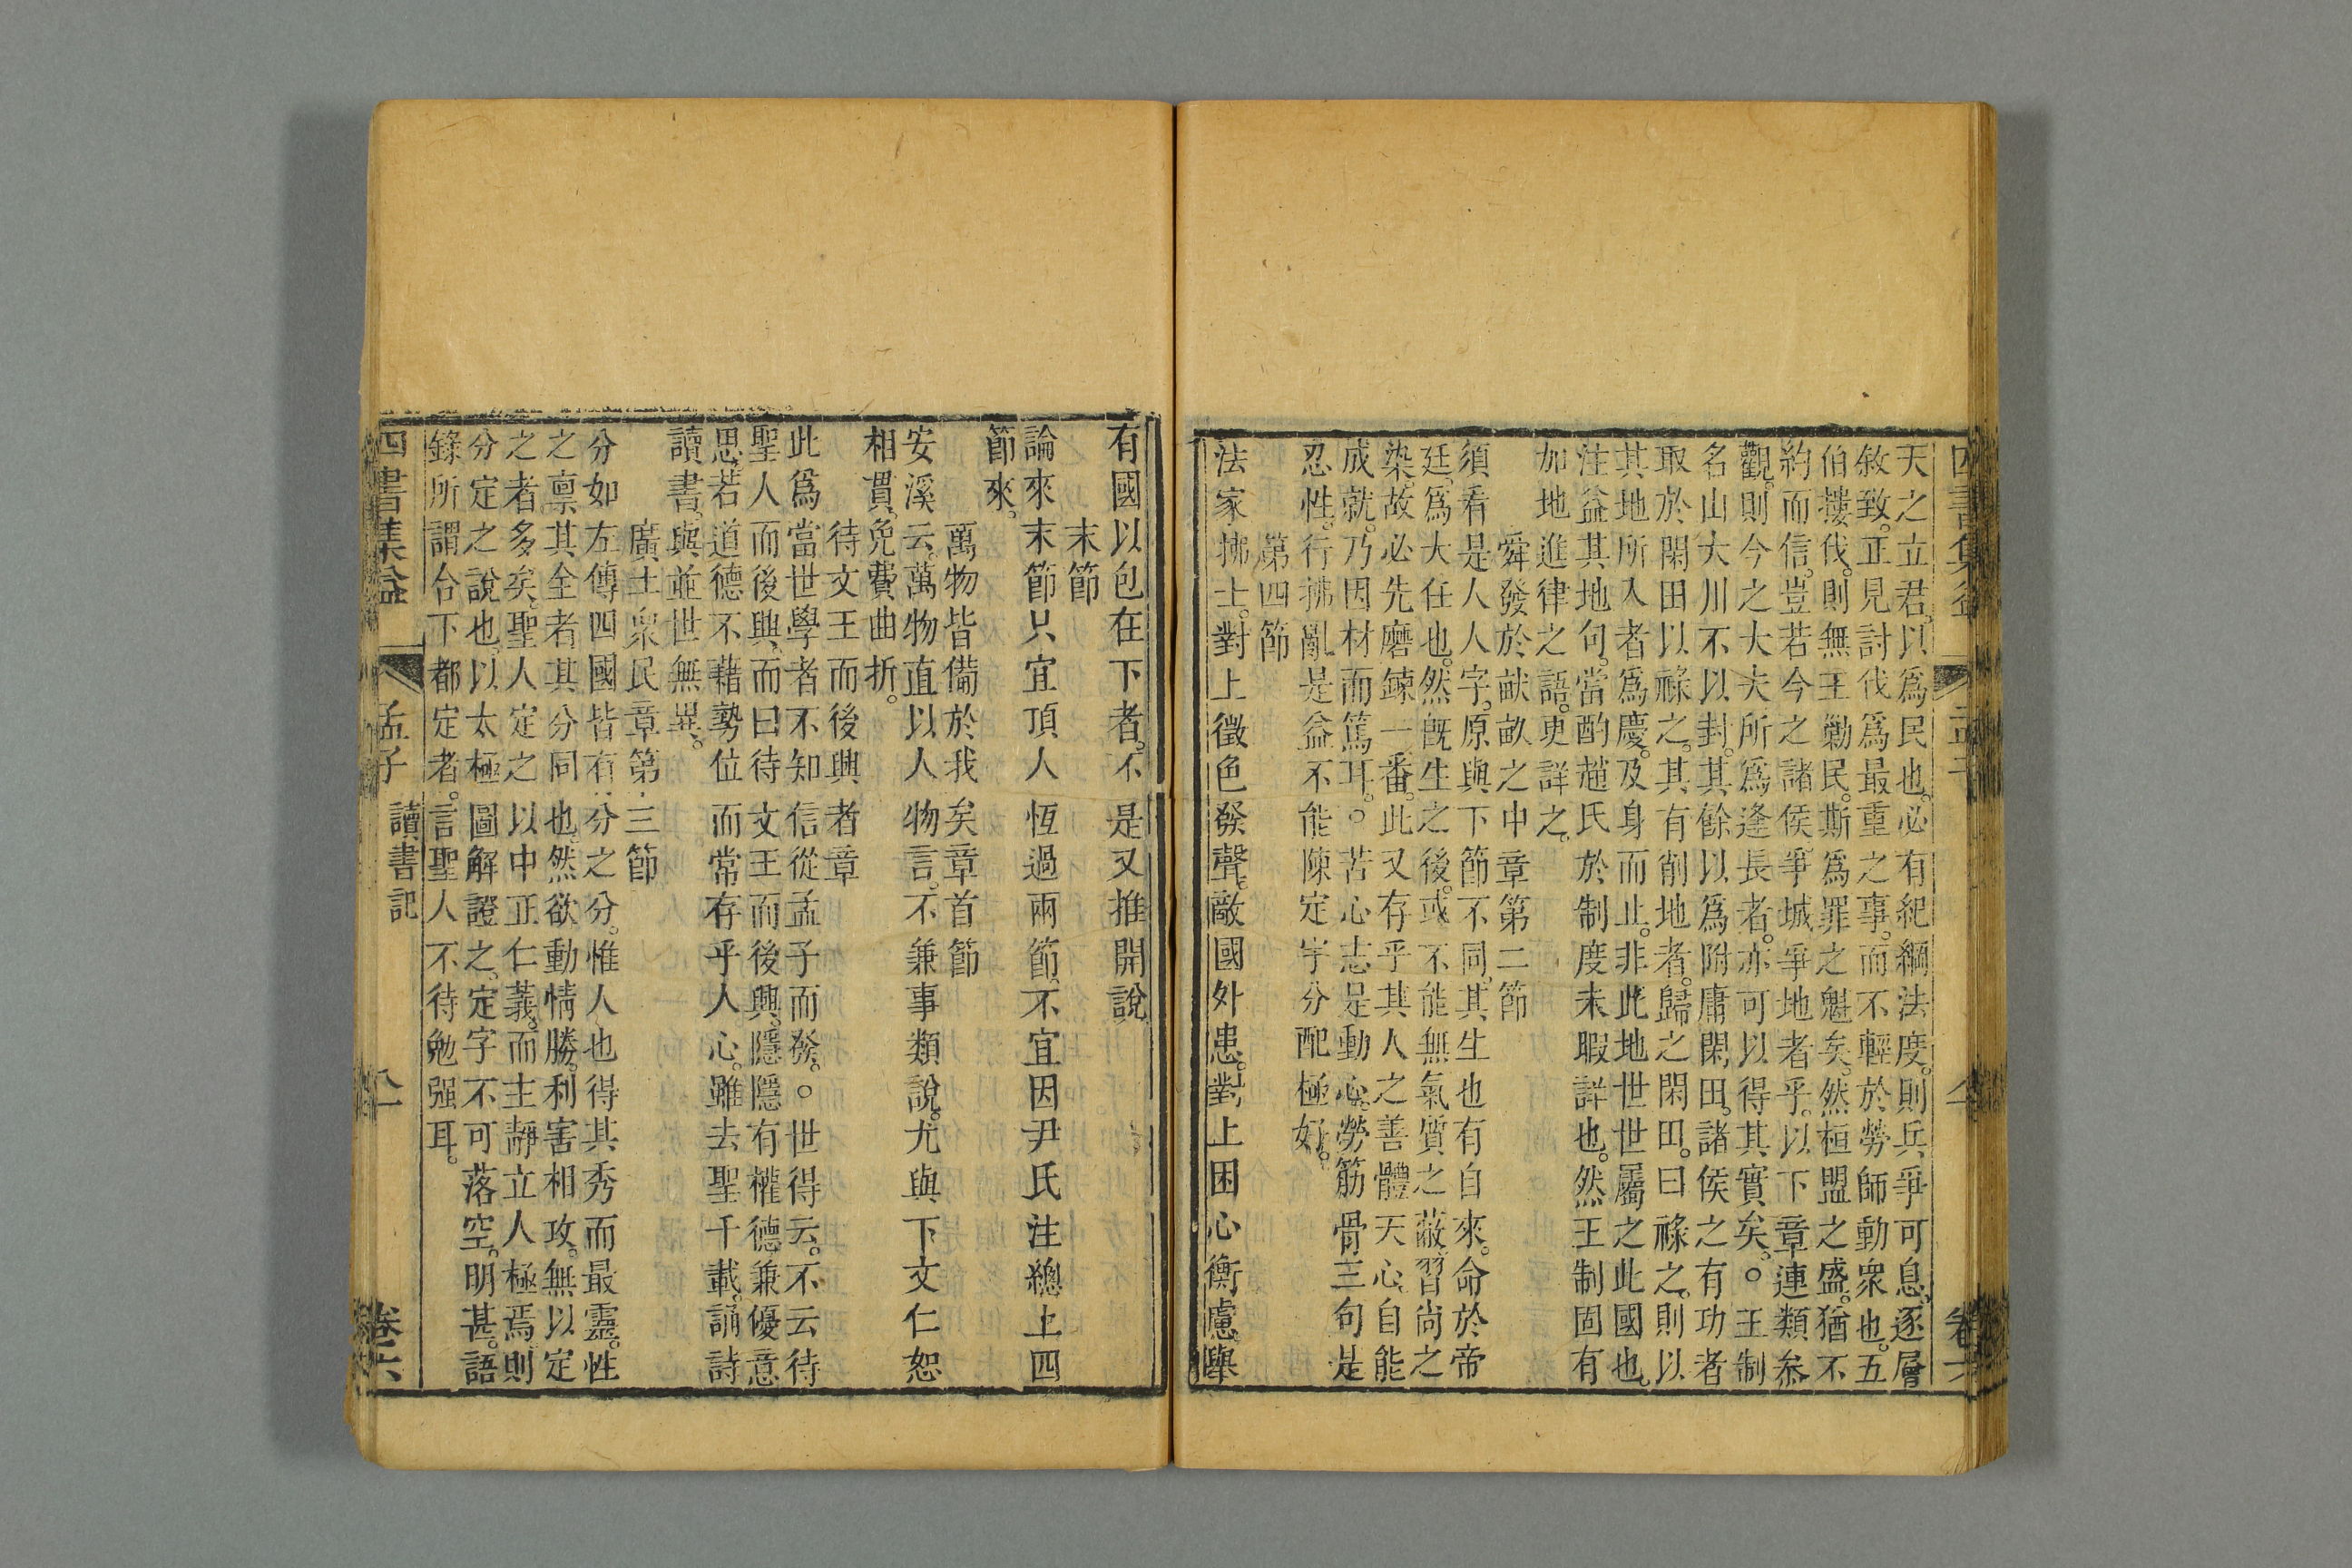 天之立君以爲民也必有紀綱法度則兵爭可息逐層
敘致正見討伐爲最重之事而不輕於勞師動衆也五
伯摟伐則無王勦民斯爲罪之魁矣然桓盟之盛猶不
約而信豈若今之諸侯爭城爭地者乎以下章連類叅
觀則今之大夫所爲逢長者亦可以得其實矣○王制
名山大川不以封其餘以爲附庸閑田諸侯之有功者
取於閑田以祿之其有削地者歸之閑田曰祿之則以
其地所入者爲慶及身而止非此地世世屬之此國也
注益其地句當酌趙氏於制度未暇詳也然王制固有
加地進律之語更詳之
舜發於畎畝之中章第二節
須看是人人字原與下節不同其生也有自來命於帝
廷爲大任也然旣生之後或不能無氣質之蔽習尚之
染故必先磨鍊一番此又存乎其人之善體天心自能
成就乃因材而篤耳○苦心志是動心勞筋骨三句是
忍性行拂亂是益不能陳定宇分配極好
第四節
法家拂士對上徵色發聲敵國外患對上困心衡慮舉
有國以包在下者不是又推開說
末節
論來末節只宜頂人恆過兩節不宜因尹氏注總上四
節來
萬物皆備於我矣章首節
安溪云萬物直以人物言不兼事類說尤與下文仁恕
相貫免費曲折
待文王而後興者章
此爲當世學者不知信從孟子而發○世得云不云待
聖人而後興而曰待文王而後興隱隱有權德兼優意
思若道德不藉勢位而常存乎人心雖去聖千載誦詩
讀書與並世無異
廣土衆民章第三節
分如左傳四國皆有分之分惟人也得其秀而最靈性
之禀其全者其分同也然欲動情勝利害相攻無以定
之者多矣聖人定之以中正仁義而主靜立人極焉則
分定之說也以太極圖解證之定字不可落空明甚語
錄所謂合下都定者言聖人不待勉强耳
四書集益 孟子 讀書記 卷六